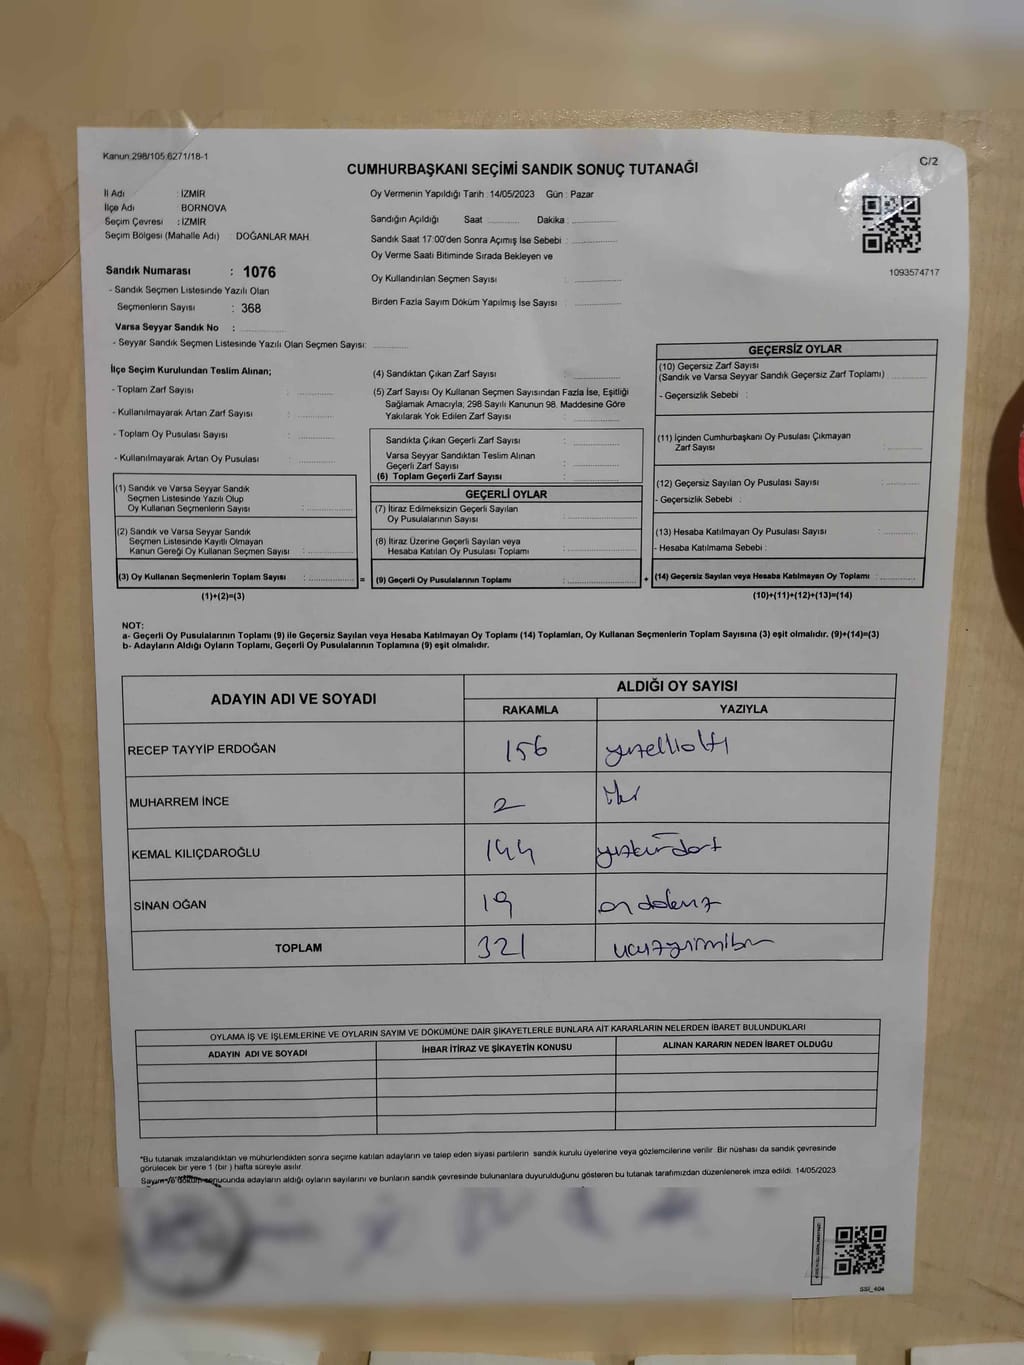 Kanun.298/105.6271/18-1
C/2
CUMHURBAŞKANI SEÇİMİ SANDIK SONUÇ TUTANAĞI
İl Adı : İZMİR
İlçe Adı : BORNOVA
Seçim Çevresi : İZMİR
Seçim Bölgesi (Mahalle Adı) : DOĞANLAR MAH.
Sandık Numarası : 1076
- Sandık Seçmen Listesinde Yazılı Olan
Seçmenlerin Sayısı : 368
Varsa Seyyar Sandık No :
- Seyyar Sandık Seçmen Listesinde Yazılı Olan Seçmen Sayısı:
Oy Vermenin Yapıldığı Tarih : 14/05/2023 Gün : Pazar
Sandığın Açıldığı Saat Dakika :
Sandık Saat 17:00'den Sonra Açımış İse Sebebi :
Oy Verme Saati Bitiminde Sırada Bekleyen ve
Oy Kullandırılan Seçmen Sayısı :
Birden Fazla Sayım Döküm Yapılmış İse Sayısı :
1093574717
İlçe Seçim Kurulundan Teslim Alınan;
- Toplam Zarf Sayısı :
- Kullanılmayarak Artan Zarf Sayısı :
- Toplam Oy Pusulası Sayısı :
- Kullanılmayarak Artan Oy Pusulası :
(1) Sandık ve Varsa Seyyar Sandık
Seçmen Listesinde Yazılı Olup
Oy Kullanan Seçmenlerin Sayısı :
(2) Sandık ve Varsa Seyyar Sandık
Seçmen Listesinde Kayıtlı Olmayan
Kanun Gereği Oy Kullanan Seçmen Sayısı :
(3) Oy Kullanan Seçmenlerin Toplam Sayısı :
(1)+(2)=(3)
=
(4) Sandıktan Çıkan Zarf Sayısı :
(5) Zarf Sayısı Oy Kullanan Seçmen Sayısından Fazla İse, Eşitliği
Sağlamak Amacıyla; 298 Sayılı Kanunun 98. Maddesine Göre
Yakılarak Yok Edilen Zarf Sayısı :
Sandıkta Çıkan Geçerli Zarf Sayısı :
Varsa Seyyar Sandıktan Teslim Alınan
Geçerli Zarf Sayısı :
(6) Toplam Geçerli Zarf Sayısı :
GEÇERLİ OYLAR
(7) İtiraz Edilmeksizin Geçerli Sayılan
Oy Pusulalarının Sayısı :
(8) İtiraz Üzerine Geçerli Sayılan veya
Hesaba Katılan Oy Pusulası Toplamı :
(9) Geçerli Oy Pusulalarının Toplamı :
+
GEÇERSİZ OYLAR
(10) Geçersiz Zarf Sayısı
(Sandık ve Varsa Seyyar Sandık Geçersiz Zarf Toplamı)
- Geçersizlik Sebebi :
(11) İçinden Cumhurbaşkanı Oy Pusulası Çıkmayan
Zarf Sayısı :
(12) Geçersiz Sayılan Oy Pusulası Sayısı :
- Geçersizlik Sebebi :
(13) Hesaba Katılmayan Oy Pusulası Sayısı :
- Hesaba Katılmama Sebebi :
(14) Geçersiz Sayılan veya Hesaba Katılmayan Oy Toplamı :
(10)+(11)+(12)+(13)=(14)
NOT:
a- Geçerli Oy Pusulalarının Toplamı (9) ile Geçersiz Sayılan veya Hesaba Katılmayan Oy Toplamı (14) Toplamları, Oy Kullanan Seçmenlerin Toplam Sayısına (3) eşit olmalıdır. (9)+(14)=(3)
b- Adayların Aldığı Oyların Toplamı, Geçerli Oy Pusulalarının Toplamına (9) eşit olmalıdır.
ADAYIN ADI VE SOYADI ALDIĞI OY SAYISI
RAKAMLA YAZIYLA
RECEP TAYYİP ERDOĞAN 156 yüzellialtı
MUHARREM İNCE 2 iki
KEMAL KILIÇDAROĞLU 144 yüzkırkdört
SİNAN OĞAN 19 ondokuz
TOPLAM 321 üçyüzyirmibir
OYLAMA İŞ VE İŞLEMLERİNE VE OYLARIN SAYIM VE DÖKÜMÜNE DAİR ŞİKAYETLERLE BUNLARA AİT KARARLARIN NELERDEN İBARET BULUNDUKLARI
ADAYIN ADI VE SOYADI İHBAR İTİRAZ VE ŞİKAYETİN KONUSU ALINAN KARARIN NEDEN İBARET OLDUĞU
"Bu tutanak imzalandıktan ve mühürlendikten sonra seçime katılan adayların ve talep eden siyasi partilerin sandık kurulu üyelerine veya gözlemcilerine verilir. Bir nüshası da sandık çevresinde
görülecek bir yere 1 (bir ) hafta süreyle asılır.
Sayım ve döküm sonucunda adayların aldığı oyların sayılarını ve bunların sandık çevresinde bulunanlara duyurulduğunu gösteren bu tutanak tarafımızdan düzenlenerek imza edildi. 14/05/2023
SSİ_404